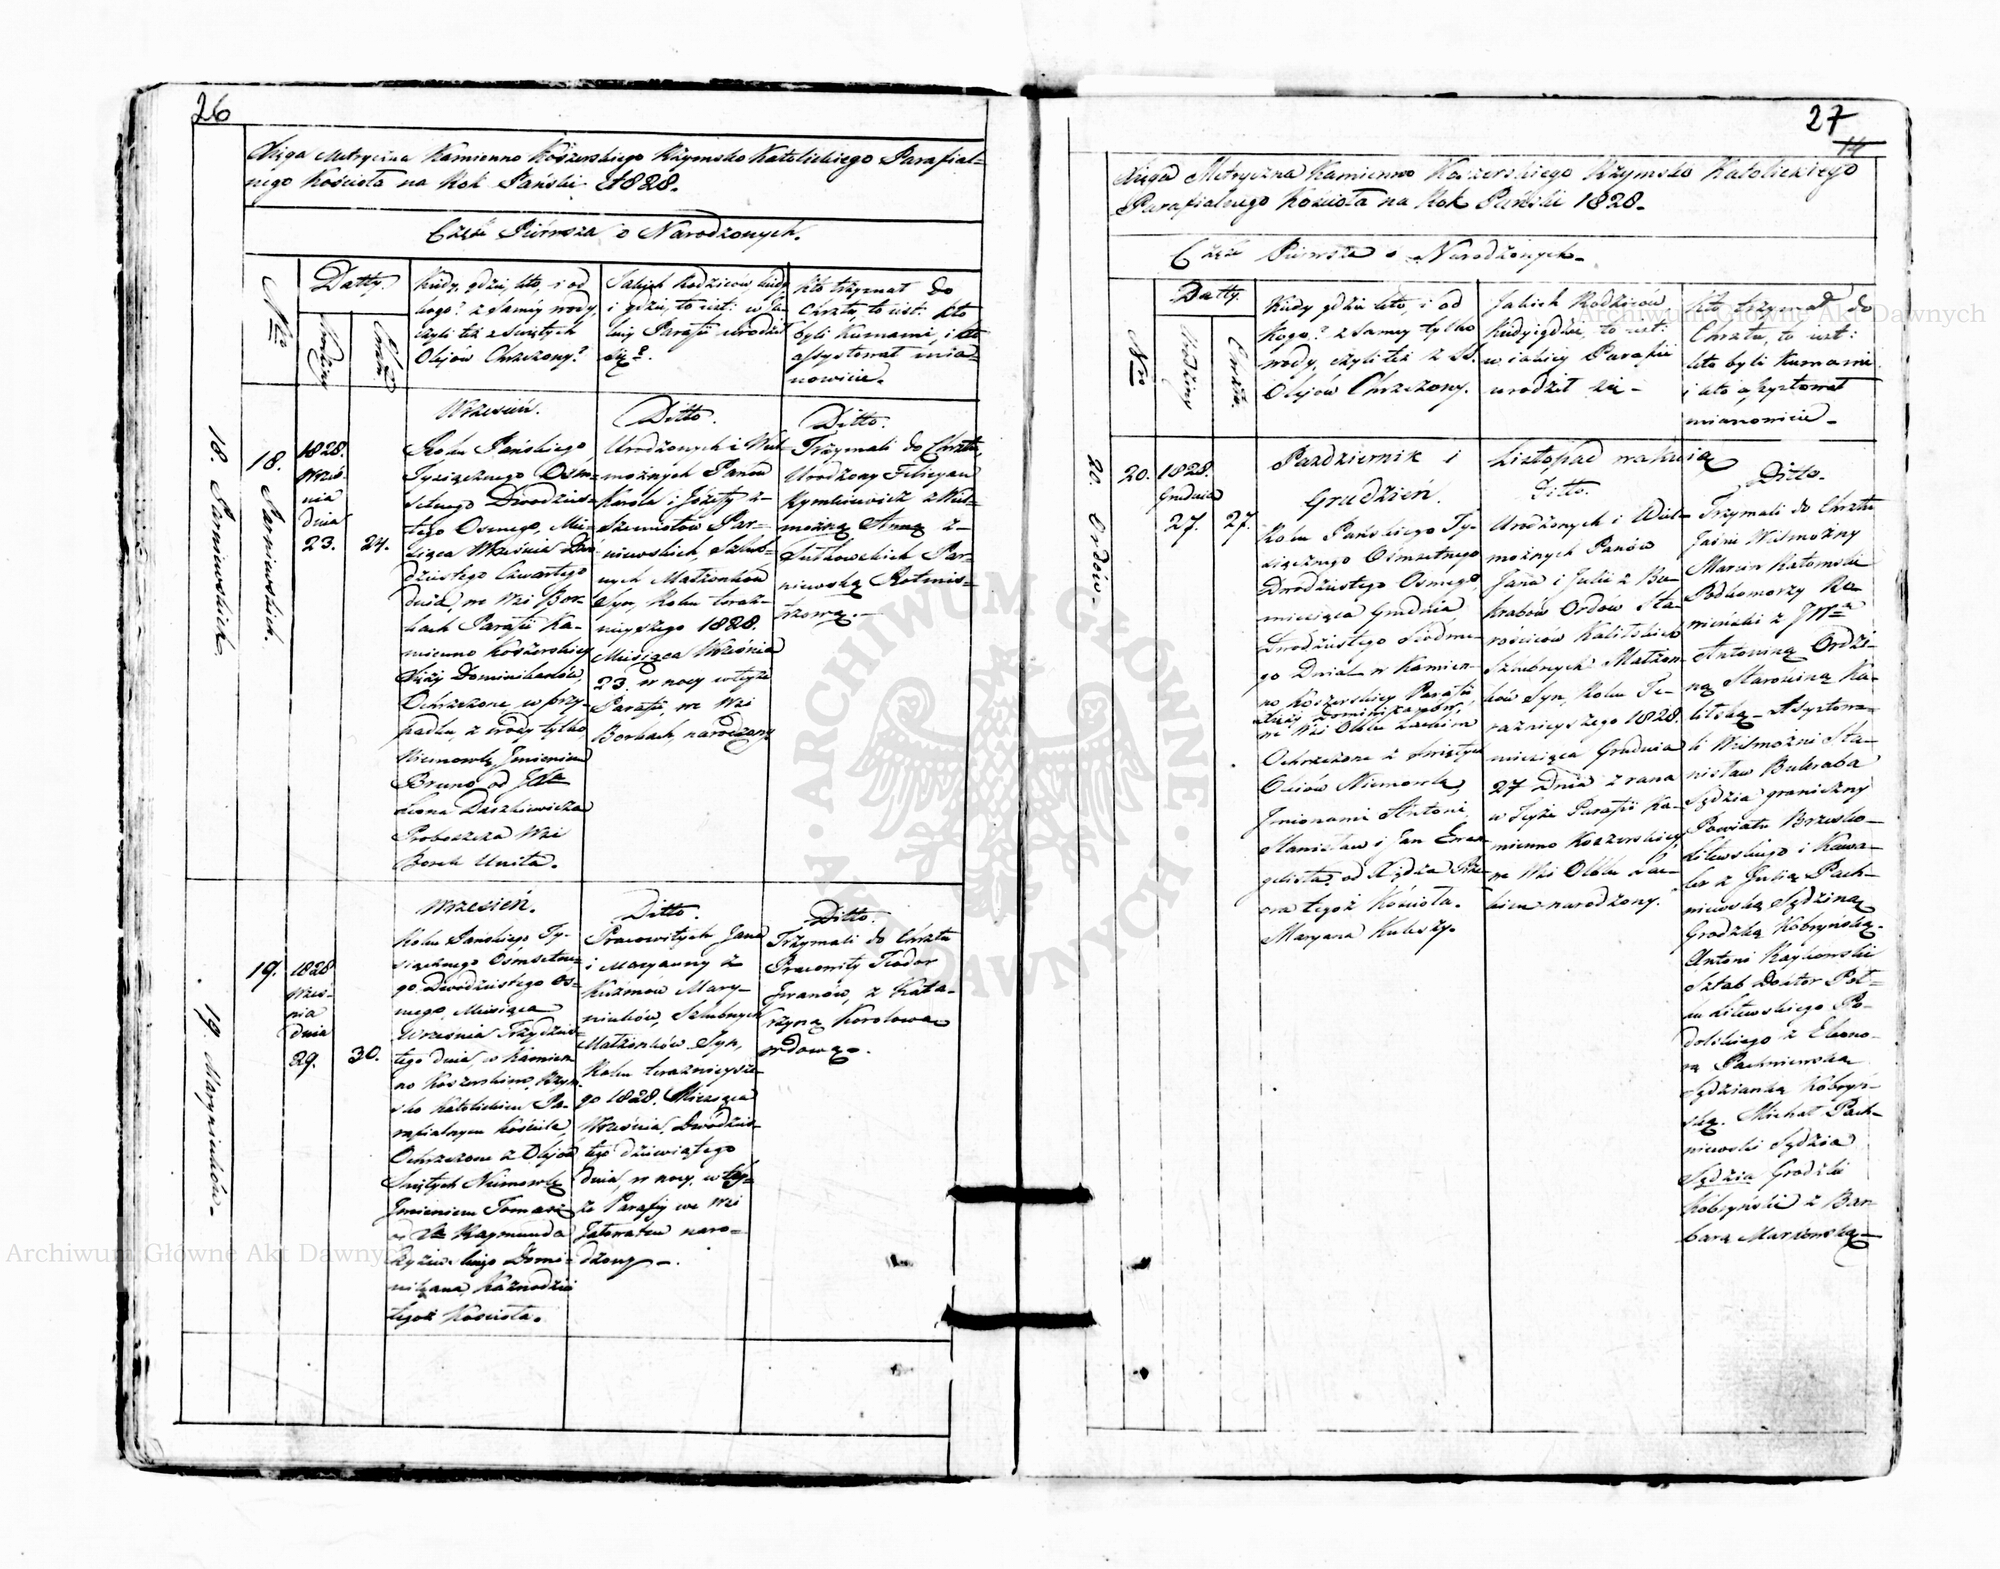 26
Xięga Metryczna Kamienno Koszerskiego Rzymsko Katolickiego Parafial=
nego Kościoła na Rok Pański 1828.
Część Pierwsza o Narodzonych.
Nro
Datty.
Urodzin
Chrztu
Kiedy, gdzie, kto, i od
kogo? z samey wody
czyli też z Swiętych
Olejów Chrzczony?
Jakich Rodziców, kiedy
i gdzie, to iest: w ja=
kiey Parafii urodził
się?
Kto trzymał do
Chrztu, to iest: kto
byli Kumami, i kto
assystował mia=
nowicie.
18. Parniewskich.
18. Parniewskich.
1828.
Wrześ=
nia
dnia
23.
24.
Wrzesień.
Roku Pańskiego
Tysiącznego Ośm=
setnego Dwódzies=
tego Osmego, Mie=
siąca Września Dwu
dziestego Czwartego
dnia, we Wsi Bor=
kach Parafii Ka=
mienno Koszerskiey
Xięży Dominikanów,
Ochrzczone, w przy=
padku, z wody tylko
Niemowlę Imieniem
Bruno od JXa
Leona Daszkiewicza
Proboszcza Wsi
Borek Unita.
Ditto.
Urodzonych i Wiel
możnych Panów
Karola i Józefy z
Szemiotów Par=
niewskich, Szlub=
nych Małżonków
Syn, Roku teraź=
nieyszego 1828.
Miesiąca Września
23. w nocy w teyże
Parafii, we Wsi
Borkach, narodzony
Ditto.
Trzymali do Chrztu,
Urodzony Felicyan
Kymkiewicz z Wiel=
możną Anną z
Sutkowskich Par=
niewską Rotmis=
trzową.
19. Maryniuków.
19.
1828
Wrześ=
nia
dnia
29.
30.
Wrzesień.
Roku Pańskiego Ty=
siącznego Ośmsetne=
go Dwódziestego Os=
mego, Miesiąca
Września Trzydzies=
tego dnia, w Kamien
no Koszerskim, Rzym
sko Katolickim Pa=
rafialnym Kościele,
Ochrzczone z Olejów
Swiętych Niemowlę
Imieniem Tomasz
od Xa Raymunda
Domi=
nikana, Kaznodziei
tegoż Kościoła.
Ditto.
Pracowitych Jana
i Maryanny z
Kuźmow Mary=
niuków, Szlubnych
Małżonków Syn,
Roku teraźnieysze=
go 1828. Miesiąca
Września, Dwódzies=
tego dziewiątego
dnia, w nocy, w tey=
że Parafii we Wsi
naro=
dzony.
Ditto.
Trzymali do Chrztu
Pracowity Teodor
Iwanów, z Kata=
rzyną Korolowa
wdową.
27
14
Xięga Metryczna Kamienno Koszerskiego Rzymsko Katolickiego
Parafialnego Kościoła na Rok Pański 1828.
Część Pierwsza o Narodzonych.
Nro
Datty.
Urodziny
Chrztu.
Kiedy gdzie kto, i od
Kogo? z samey tylko
wody, czyli też z SS.
Olejów Chrzczony.
Jakich Rodziców
kiedy i gdzie, to iest:
w iakiey Parafii
urodził się
Kto trzymał do
Chrztu, to iest:
kto byli Kumami
i kto assystował
mianowicie
20. Ordów
20.
1828.
Grudnia
27.
27.
Październik i Listopad wakuią
Grudzień.
Roku Pańskiego Ty=
siącznego Ośmsetnego
Dwódziestego Osmego,
miesiąca Grudnia
Dwódziestego Siódme=
go Dnia w Kamien=
no Koszerskiey Parafii
Xięży Dominikanów,
we Wsi
Ochrzczone z Swiętych
Oleiów Niemowlę,
Imionami Antoni,
Stanisław i Jan Ewan=
gelista, od Xiędza Prze=
ora tegoż Kościoła.
Maryana Kuleszy.
Ditto.
Urodzonych i Wiel=
możnych Panów
Jana i Julii z Bu=
krabów Ordów Sta=
rościców Kaliskich
Szlubnych Małżon=
ków Syn, Roku Te=
raźnieyszego 1828.
miesiąca Grudnia
27 Dnia z rana
w Teyże Parafii Ka=
mienno Koszerskiey,
we Wsi
narodzony.
Ditto.
Trzymali do Chrztu
Jaśnie Wielmożny
Marcin
Podkomorzy
z JWą
Antoniną Ordzi=
ną Starościną Ka=
liską. Assystowa=
li Wielmożni Sta=
nisław Bukraba
Sędzia graniczny
Powiatu Brzesko=
Litewskiego i Kawa=
ler z Julią Pach=
niewską Sędziną
Grodzką Kobryńską.
Antoni Raykowski
Sztab Doktor Poł=
ku Litewskiego Po=
dolskiego z Eleono=
rą Pachniewską
Sędzianką Kobryń=
ską. Michał Pach=
niewski Sędzia
Sędzia Grodzki
Kobryński z Bar=
barą